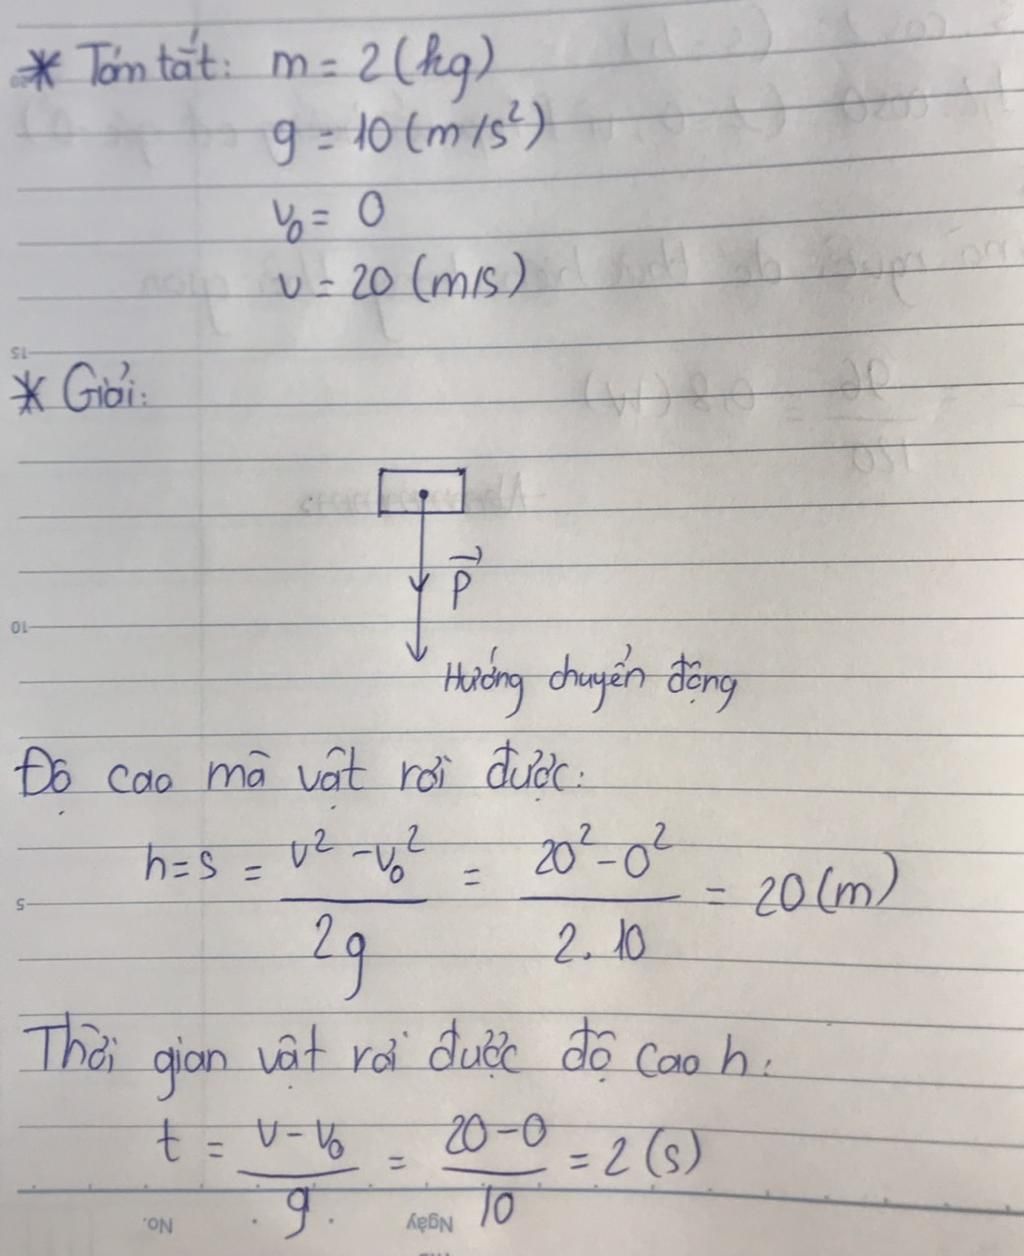 * Tóm tắt: m = 2 (kg)
g = 10 (m/s²)
v₀ = 0
v = 20 (m/s)
15
* Giải:
P⃗
10
Hướng chuyển động
Độ cao mà vật rơi được:
h = s = (v² - v₀²) / 2g = (20² - 0²) / 2. 10 = 20 (m)
5
Thời gian vật rơi được độ cao h:
t = (v - v₀) / g = (20 - 0) / 10 = 2 (s)
No. Ngày